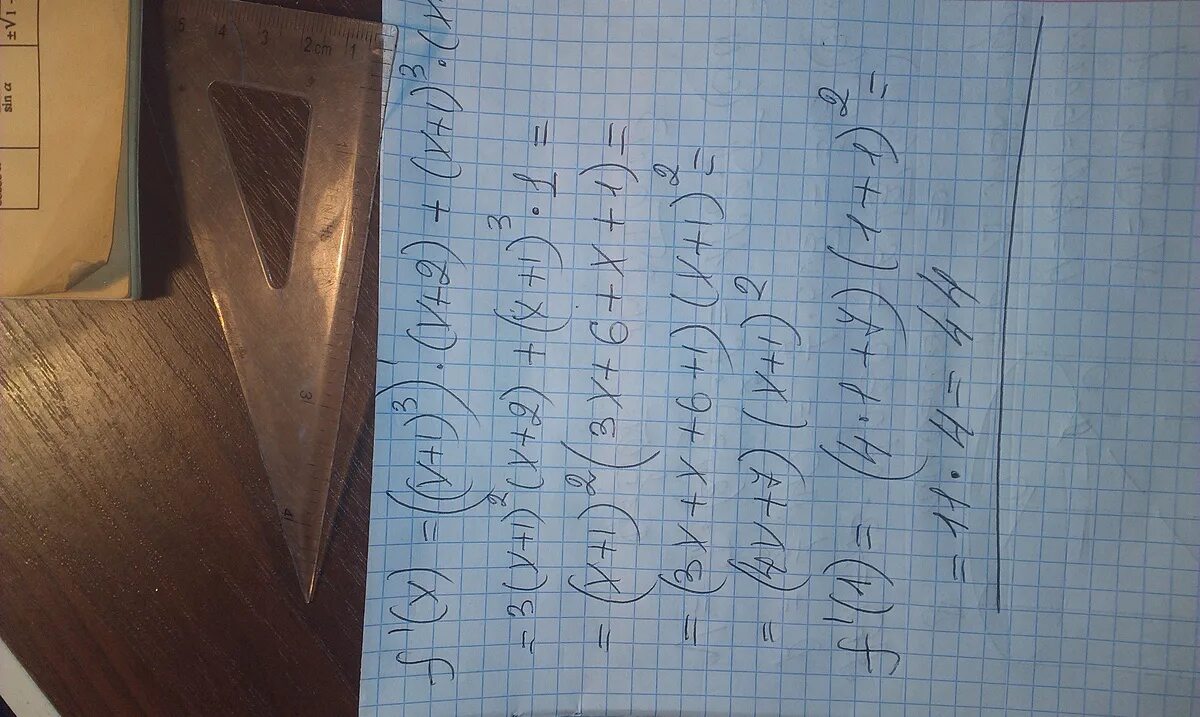 f'(x) = ((x+1)³)' · (x+2) + (x+1)³ · (x
= 3(x+1)²(x+2) + (x+1)³ · 1 =
= (x+1)² (3x + 6 + x + 1) =
= (3x + x + 6 + 1) (x+1)² =
= (4x+7) (x+1)²
f'(1) = (4·1+7) (1+1)² =
= 11 · 4 = 44
±√1
sin α
5 4 3 2 cm 1
31
41